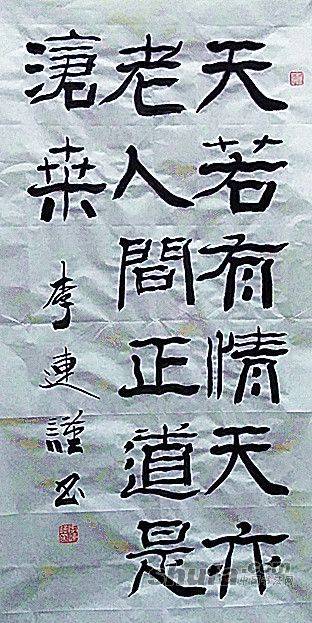 天若有情天亦
老人間正道是
滄桒
李連謹书